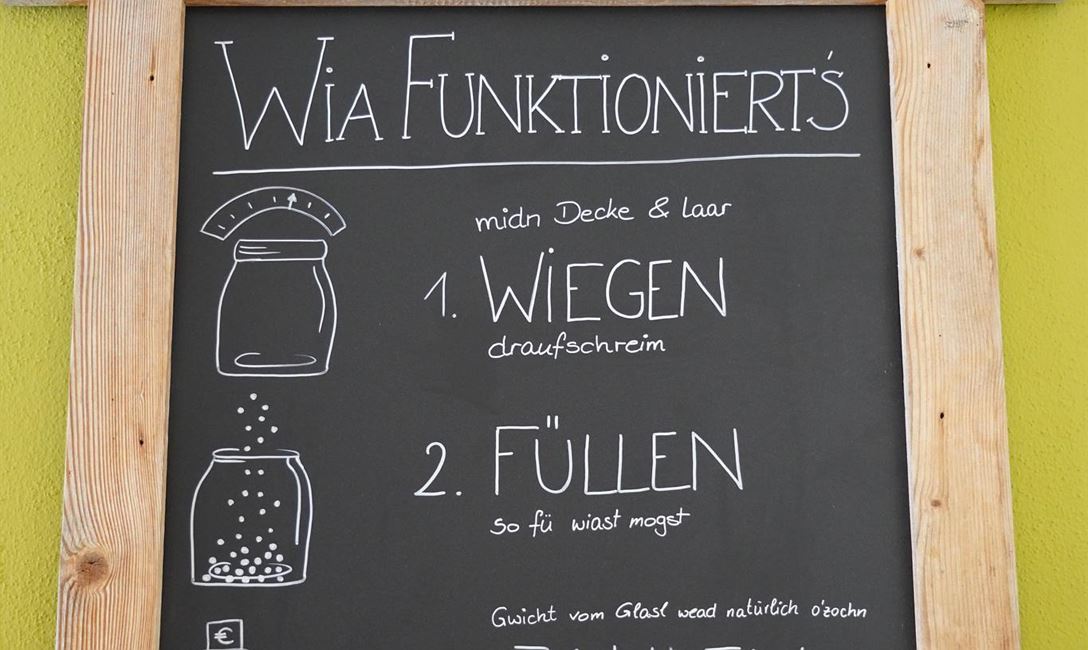 WiA FUNKTiONiERT'S
midn Decke & laar
1. WiEGEN
draufschreim
2. FÜLLEN
so fü wiast mogst
Gwicht vom Glasl wead natürlich o'zochn
€